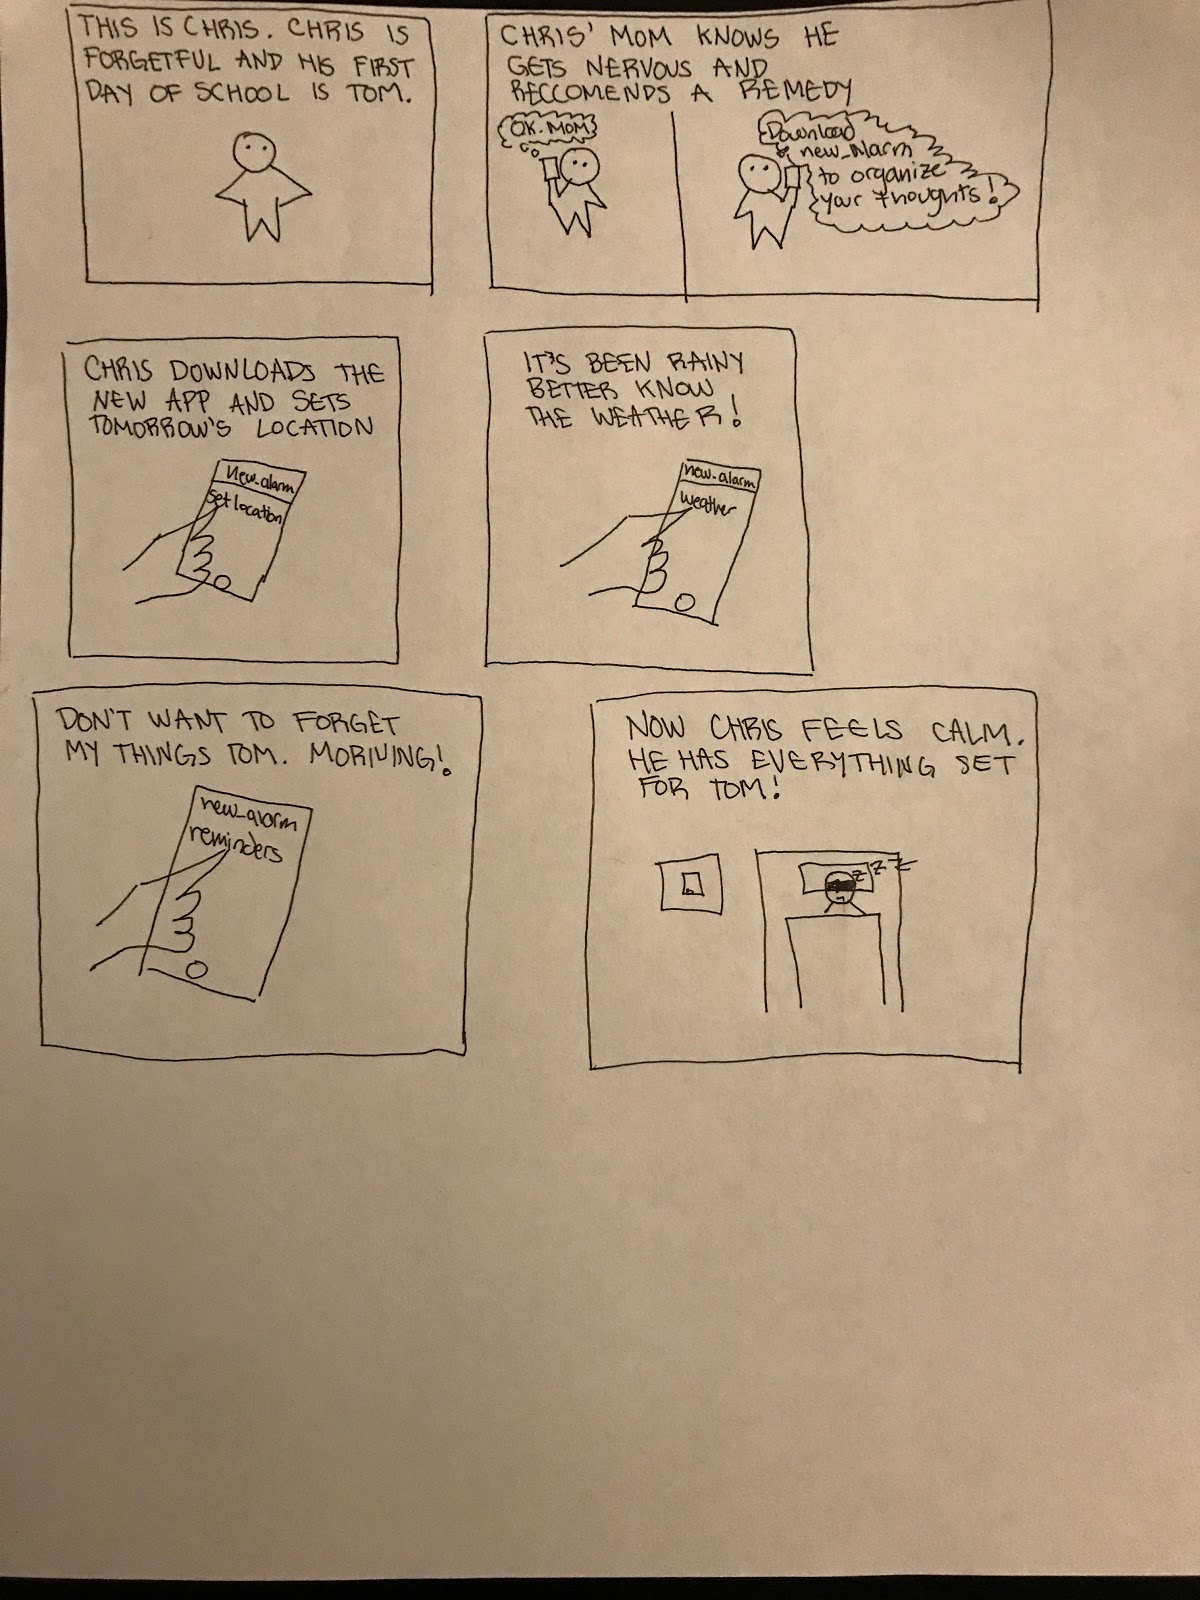 THIS IS CHRIS. CHRIS IS
FORGETFUL AND HIS FIRST
DAY OF SCHOOL IS TOM.
CHRIS' MOM KNOWS HE
GETS NERVOUS AND
RECCOMENDS A REMEDY
OK. MOM
Download
new_Alarm
to organize
your thoughts!
CHRIS DOWNLOADS THE
NEW APP AND SETS
TOMORROW'S LOCATION
New_alarm
Set location
IT'S BEEN RAINY
BETTER KNOW
THE WEATHER!
new_alarm
Weather
DON'T WANT TO FORGET
MY THINGS TOM. MORNING!
new_alarm
reminders
NOW CHRIS FEELS CALM.
HE HAS EVERYTHING SET
FOR TOM!
z z z